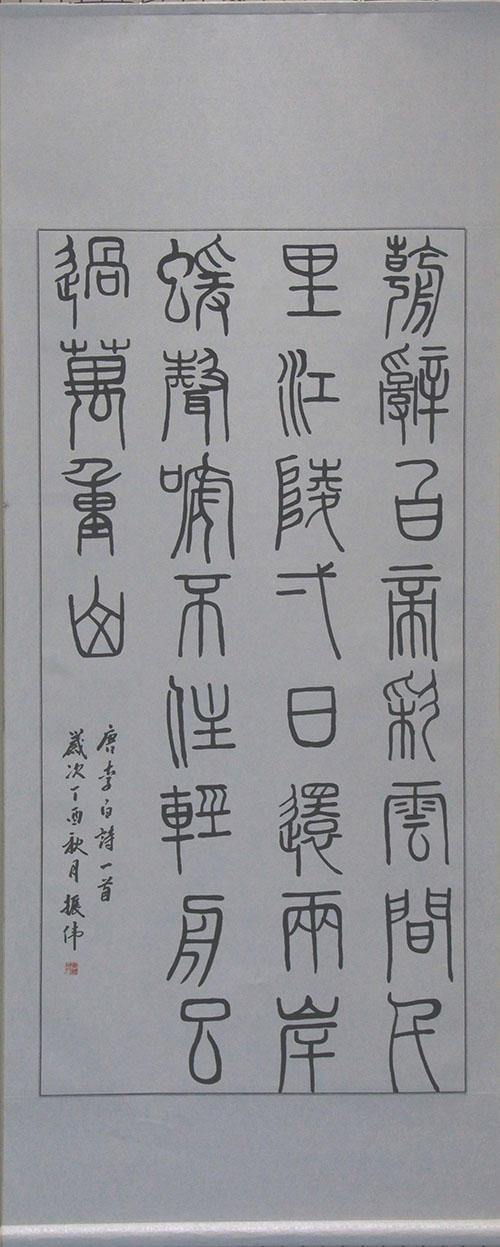 朝辭白帝彩雲間千
里江陵弌日還兩岸
蝯聲嗁不住輕舟已
過萬重山
唐李白詩一首
歲次丁酉秋月振伟